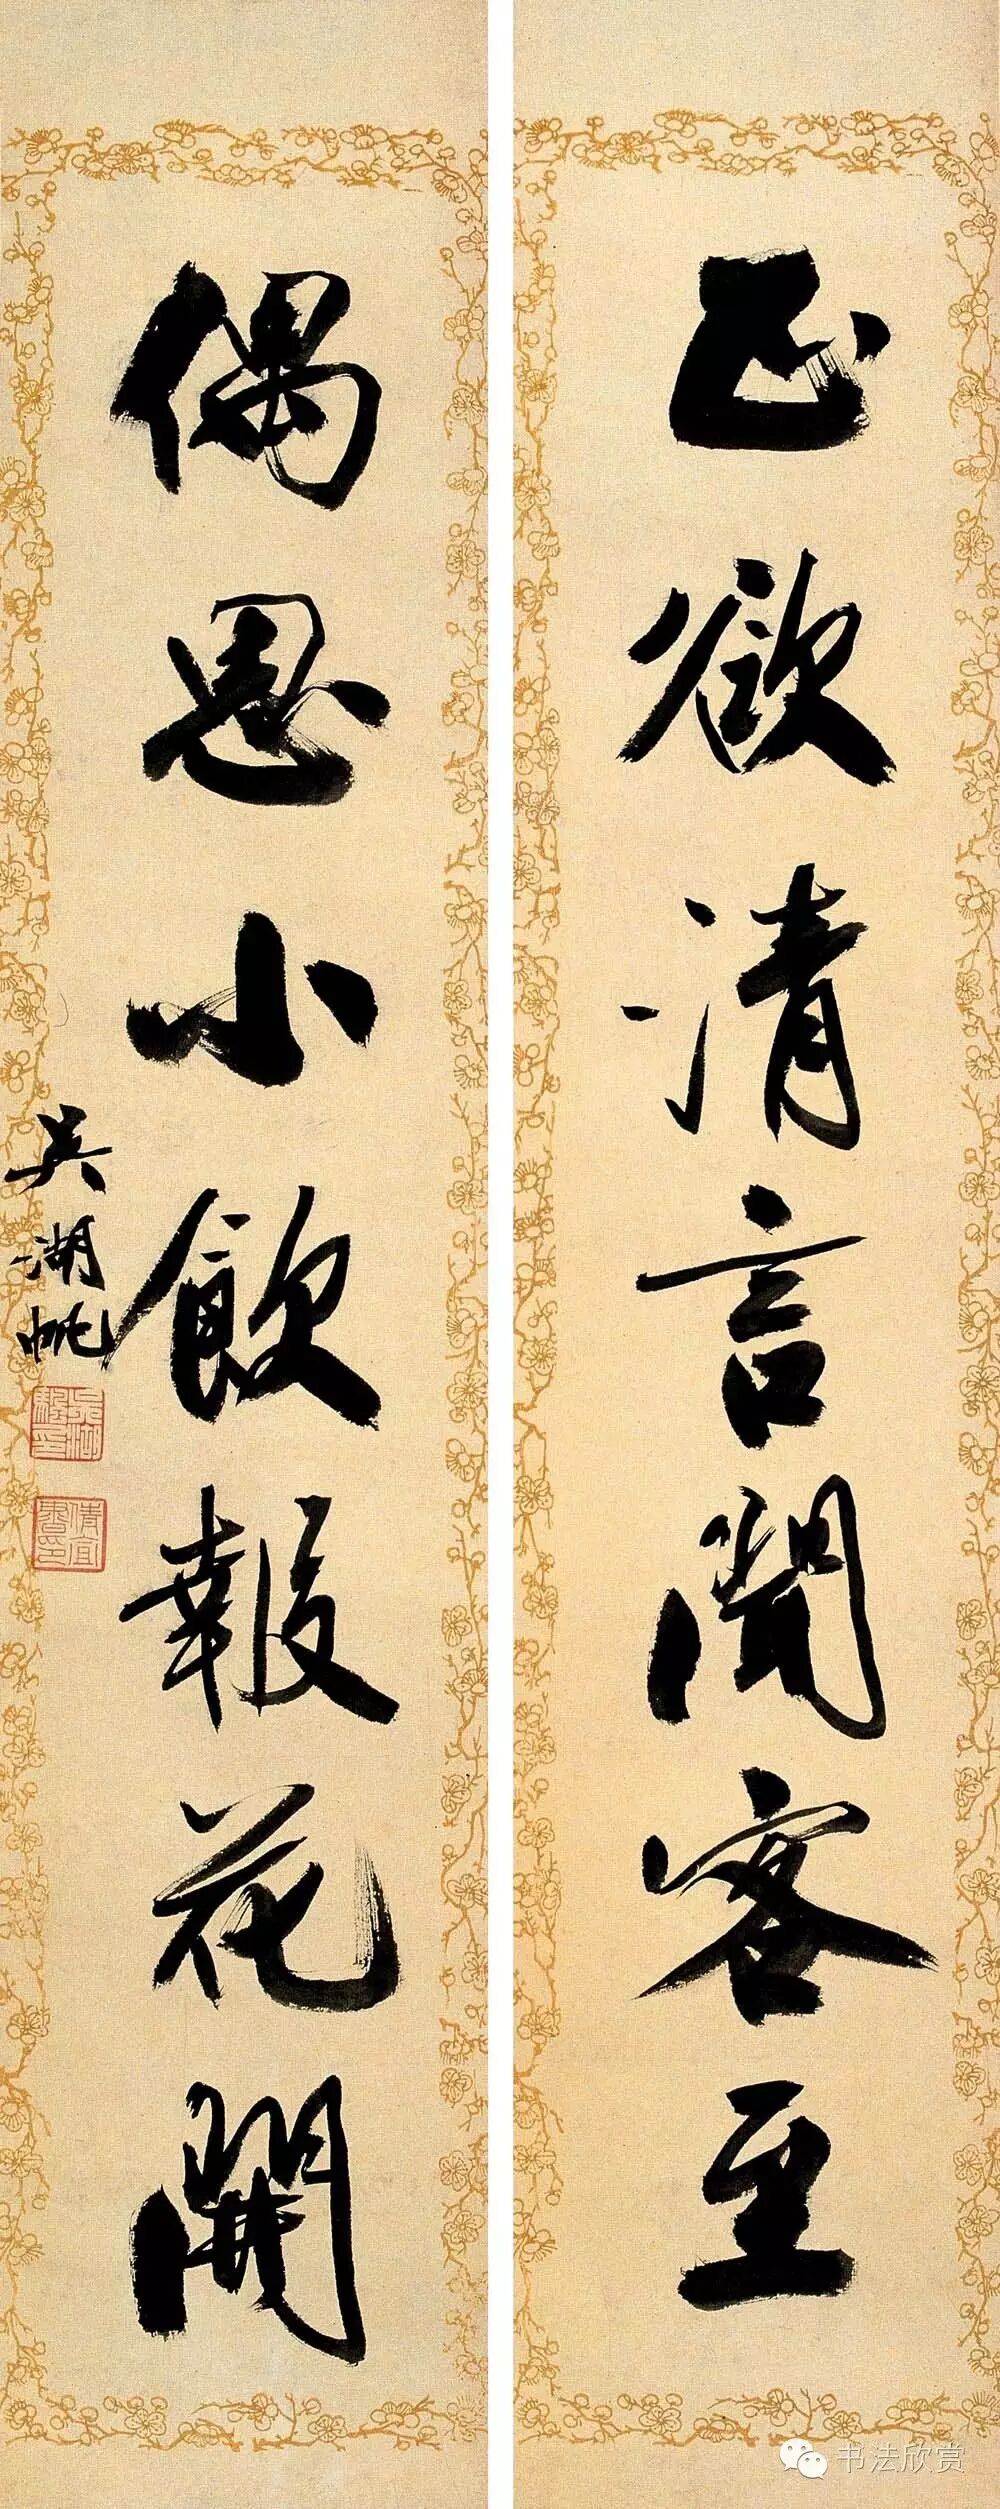 正欲清言聞客至
偶思小飲報花開
吳湖帆
倩宜書印
书法欣赏